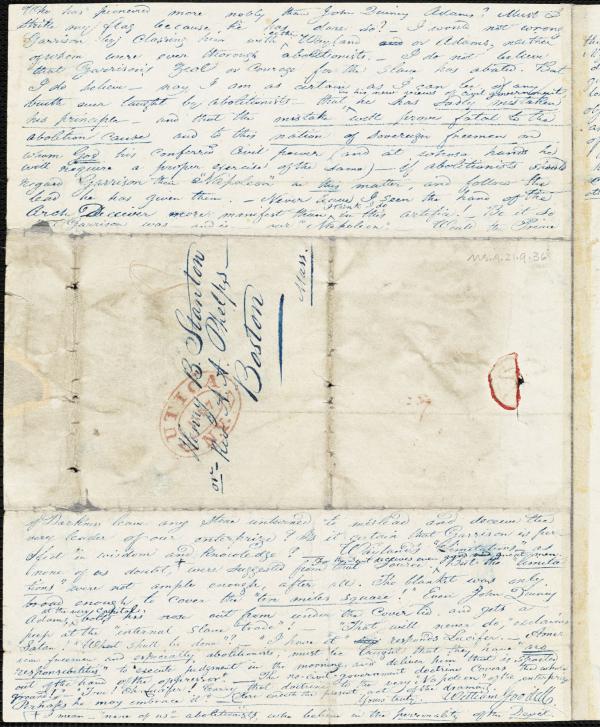 Who has pioneered more nobly than John Quincy Adams? Must I
strike my flag because he has done so? — I would not wrong
Garrison by classing him with either Wayland or Adams, neither
of whom were ever thorough abolitionists. — I do not believe
that Garrison's zeal or courage for the slave has abated. But
I do believe — nay I am as certain as I can be of any
truth ever taught by abolitionists — that he has sadly mistaken
in his new views of civil government,
his principles — and that the mistake will prove fatal to the
abolition cause and to this nation of sovereign freemen on
whom God has conferred civil power (and at whose hands he
will require a proper exercise of the same) — if abolitionists
regard Garrison their "Napoleon" in this matter, and follow the
lead he has given them. — Never have I seen the hand of the
Arch Deceiver more manifest than I think I do in this artifice. — Be it so
Garrison was and is our "Napoleon". Would the Prince
MS.A.21.9.36
Henry B. Stanton
or Rev. A. A. Phelps
Boston
Mass.
UTICA
N.Y.
of Darkness leave any stone unturned to mislead and deceive the
very leader of our enterprize? Is it certain that Garrison is per-
fect in wisdom and knowledge? Wayland's Limitations as
none of us doubt were suggested from that source. But the "limita-
tions" were not ample enough, after all. The blanket was only
broad enough to cover the "ten miles square!" Even John Quincy
Adams, at the very Capitol, has rose out from under the Coverlid and gets a
peep at the internal slave "trade"! "That will never do," exclaims
Satan! "What shall be done"? "I have it" responds Lucifer. — Amer-
ican freemen and especially abolitionists, must be taught that they have no
responsibilities "to execute judgment in the morning and deliver him that is spoiled
out of the hand of the oppressor". The no-civil government doctrine covers the whole
ground! "True! Oh Lucifer! Carry that doctrine to the "Napoleon" of the enterprize
Perhaps he may embrace it!" — Close exit the first act of the drama.
Yours truly. William Goodell
I mean "none of us" abolitionists, who believe in the personality of the Devil.